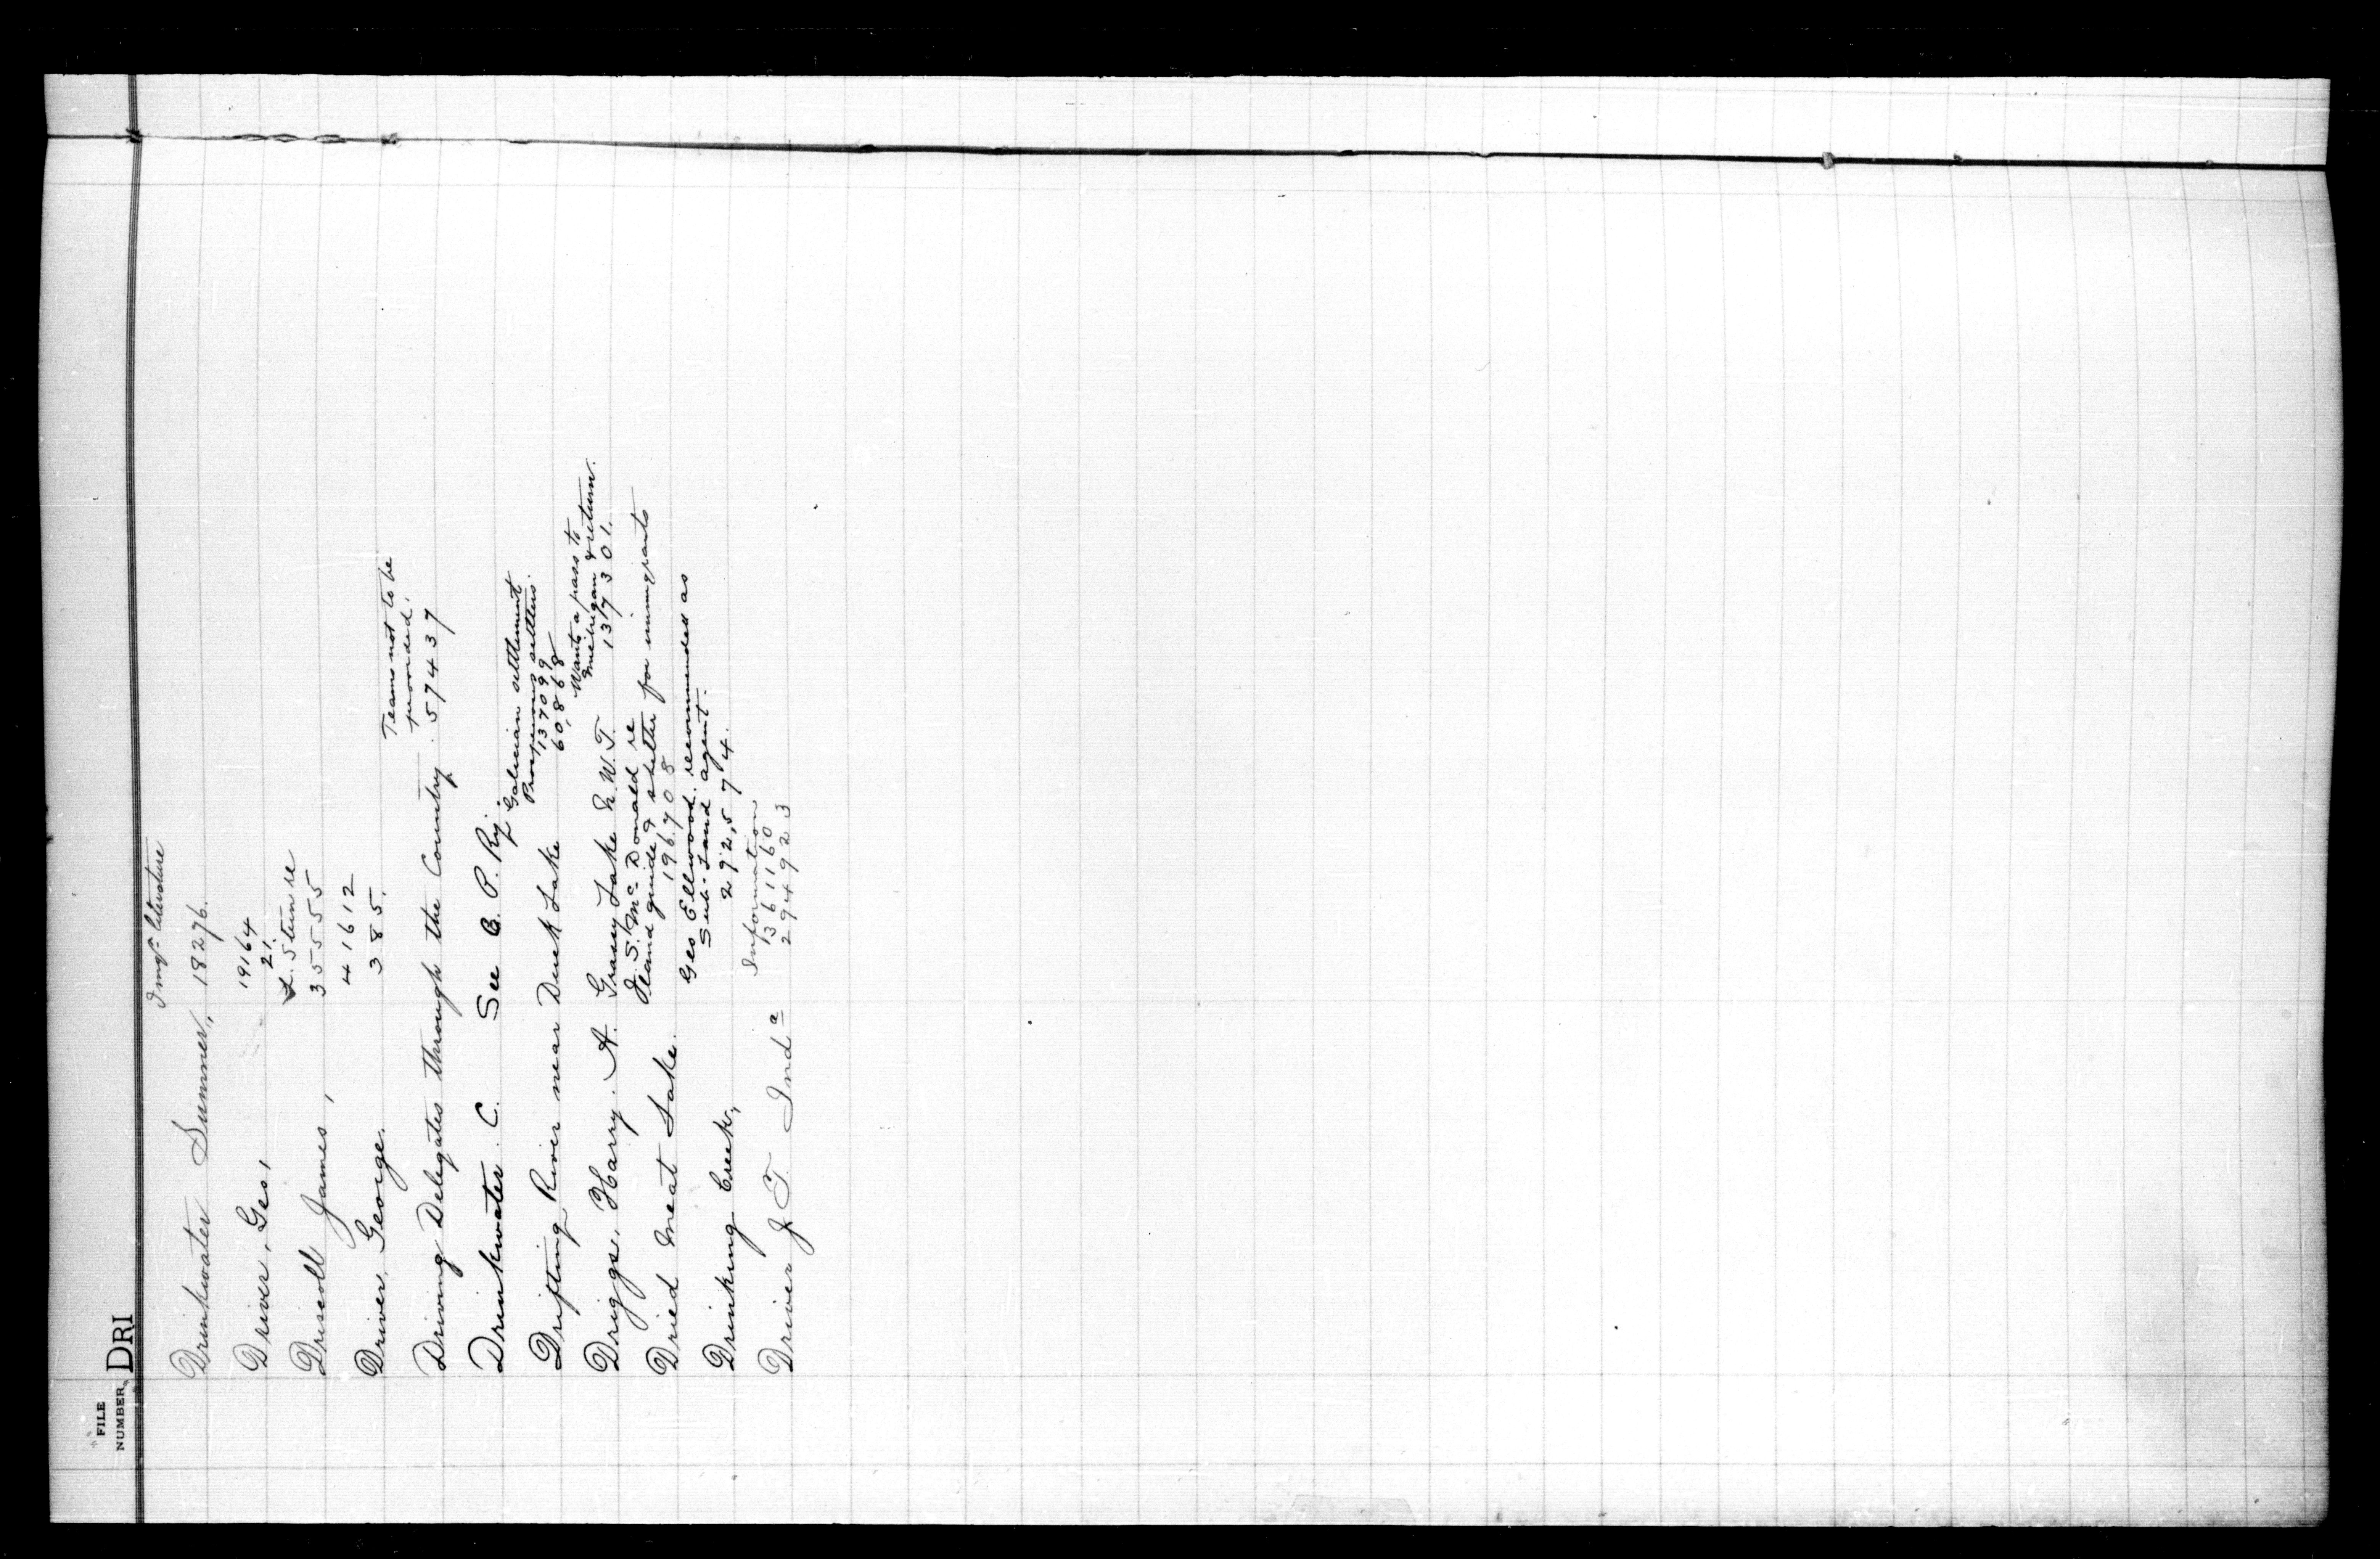 FILE
NUMBER.
DRI
Immgn literature
Drinkwater Sumner, 18276.
Driver, Geo, 19164
21.
L. Stein re
Driscoll James, 35555
41612
Driver, George. 385.
Teams not to be
provided.
Driving Delegates through the Country. 57437
Drinkwater C. See C. P. Ry.
Galician settlement
Prosperous settlers.
137099
Drifting River near Duck Lake 608868
Wants a pass to
Michigan & return.
Driggs, Harry. A. Grassy Lake N.W.T. 137301.
J. S. McDonald re
land guide & shelter for immigrants
Dried Meat Lake. 196708
Geo Ellwood recommended as
Sub. Land agent.
Drinking Creek, 292574.
Information
1361160
Driver J T. Inda 294923